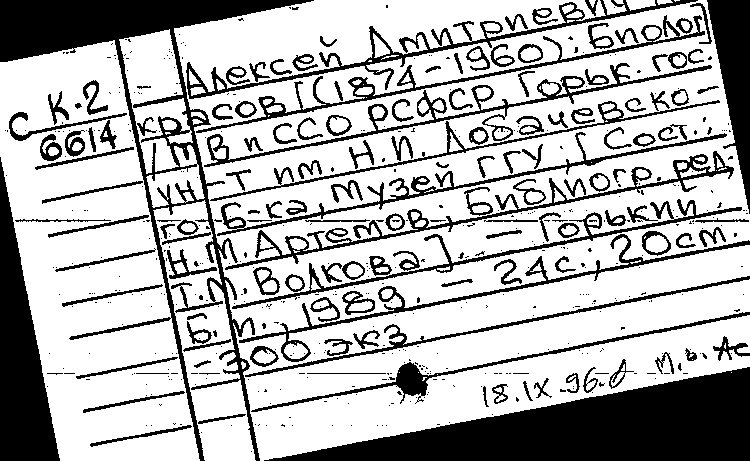 Алексей Дмитриевич
С К.2
6614
красов [(1874-1960): Биолог]
/ МВ и ССО РСФСР, Горьк. гос.
ун-т им. Н.И. Лобачевско-
го. Б-ка, Музей ГГУ; [Сост.:
Н.М. Артемов; Библиогр. ред.
Т.М. Волкова]. - Горький:
Б.и., 1989. - 24с.; 20см.
-300 экз.
18.IX.96.